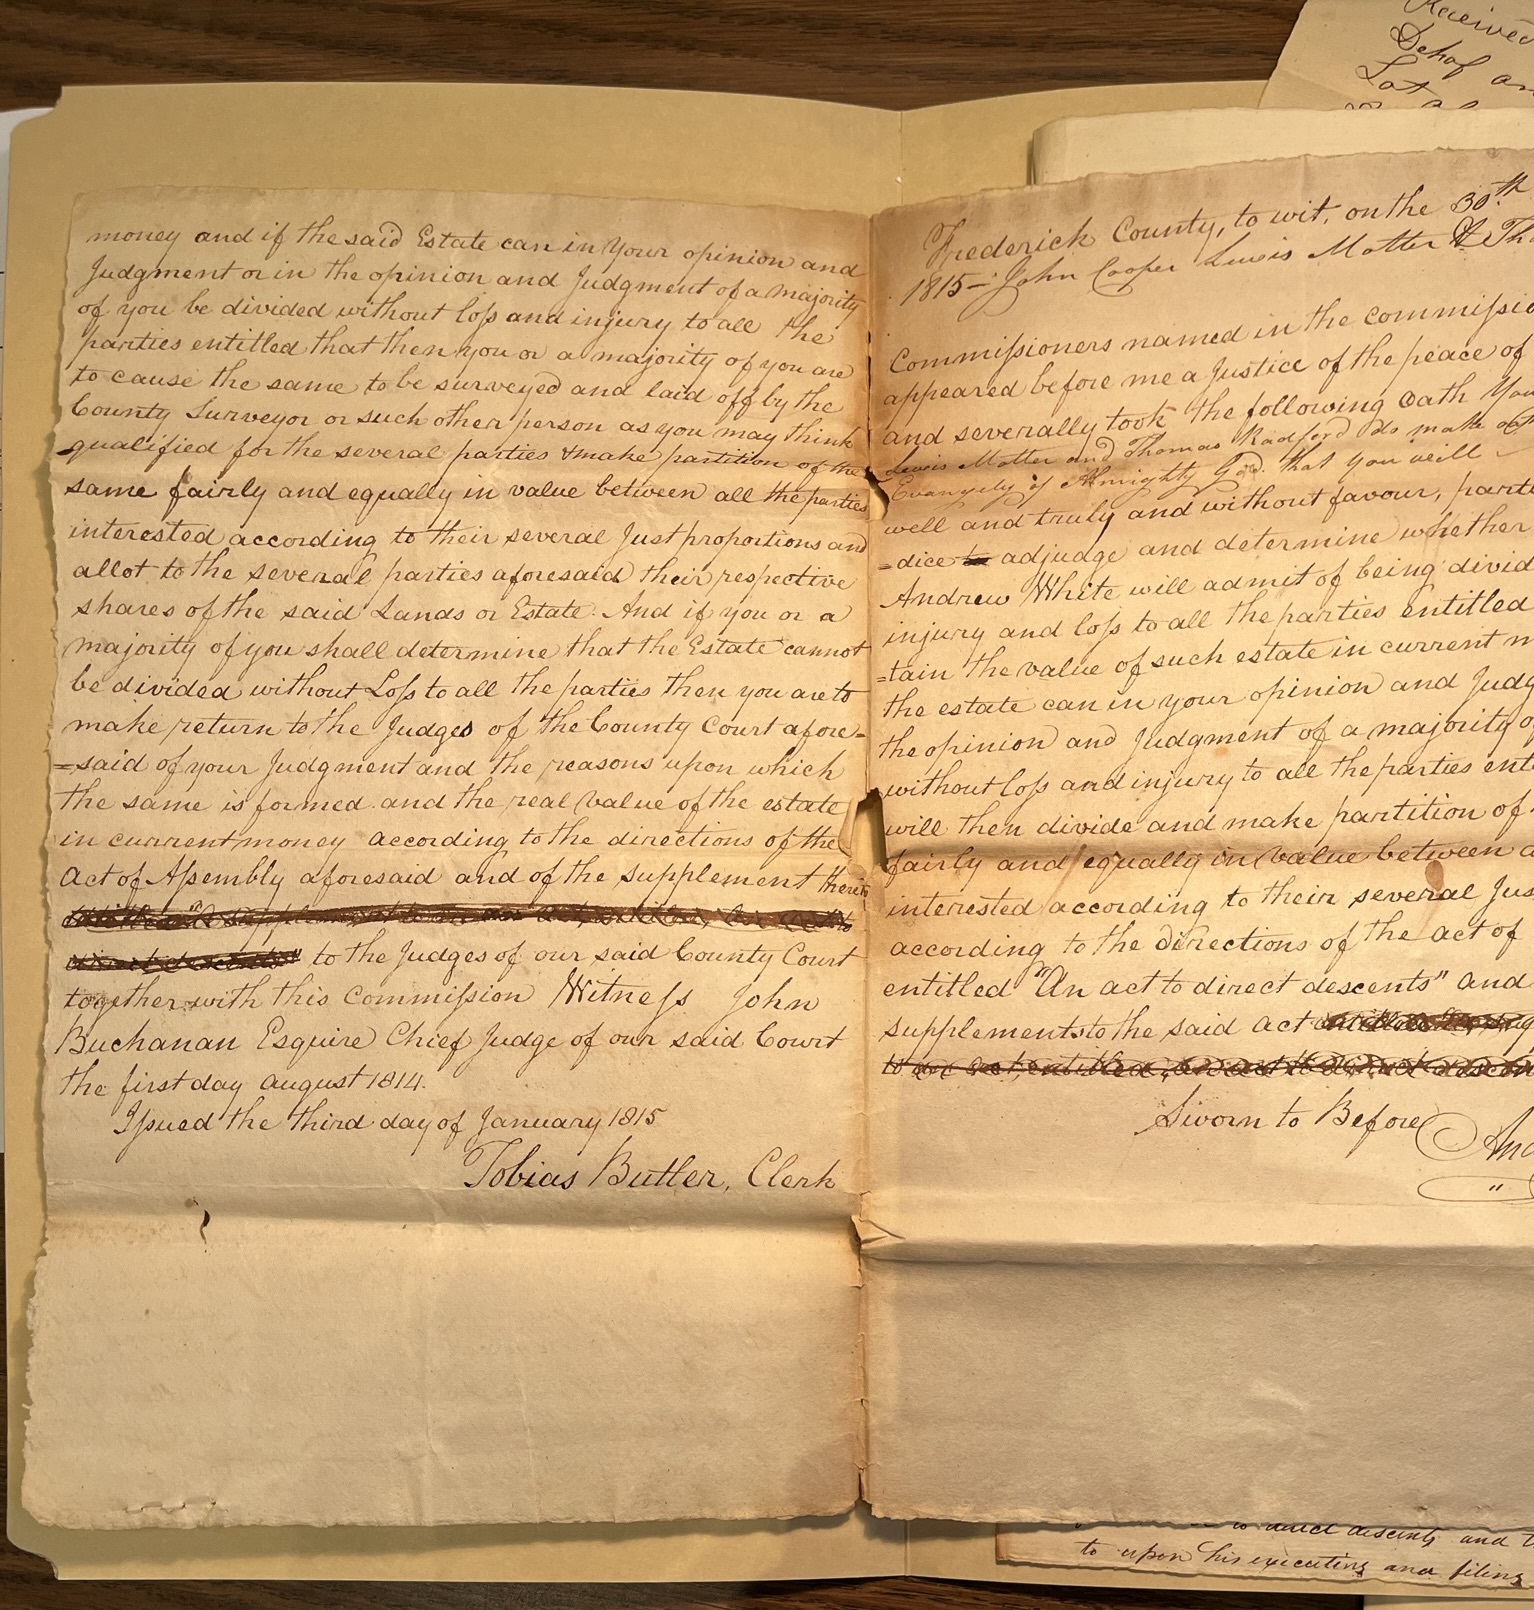 money and if the said Estate can in Your opinion and
Judgment or in the opinion and Judgment of a majority
of you be divided without loſs and injury to all the
parties entitled that then you or a majority of you are
to cause the same to be surveyed and laid off by the
County Surveyor or such other person as you may think
qualified for the several parties & make partition of the
same fairly and equally in value between all the parties
interested according to their several Just proportions and
allot to the several parties aforesaid their respective
shares of the said Lands or Estate. And if you or a
majority of you shall determine that the Estate cannot
be divided without Loſs to all the parties then you are to
make return to the Judges of the County Court afore=
=said of your Judgment and the reasons upon which
the same is formed and the real Value of the estate
in current money according to the directions of the
Act of Aſsembly aforesaid and of the supplement thereto
to the Judges of our said County Court
together with this Commiſsion Witneſs John
Buchanan Esquire Chief Judge of our said Court
the first day august 1814.
Iſsued the third day of January 1815
Tobias Butler, Clerk
Frederick County, to wit, on the 30th
1815 – John Cooper Lewis Motter & Tho
Commiſsioners named in the commiſsio
appeared before me a Justice of the peace of
and severally took the following oath You
Lewis Motter and Thomas Radford do make
Evangely of Almighty God that you will
well and truly and without favour, parti
=dice to adjudge and determine whether
Andrew White will admit of being divid
injury and loſs to all the parties entitled
=tain the value of such estate in current m
the estate can in your opinion and Judg
the opinion and Judgment of a majority of
without loſs and injury to all the parties enti
will then divide and make partition of
fairly and equally in Value between a
interested according to their several Jus
according to the directions of the act of
entitled "An act to direct descents" and
supplements to the said act
to an act, entitled, an act to direct descen
Sworn to Before
And
"
Received
Dehof an
Lot
to direct descents and t
to upon his executing and filing